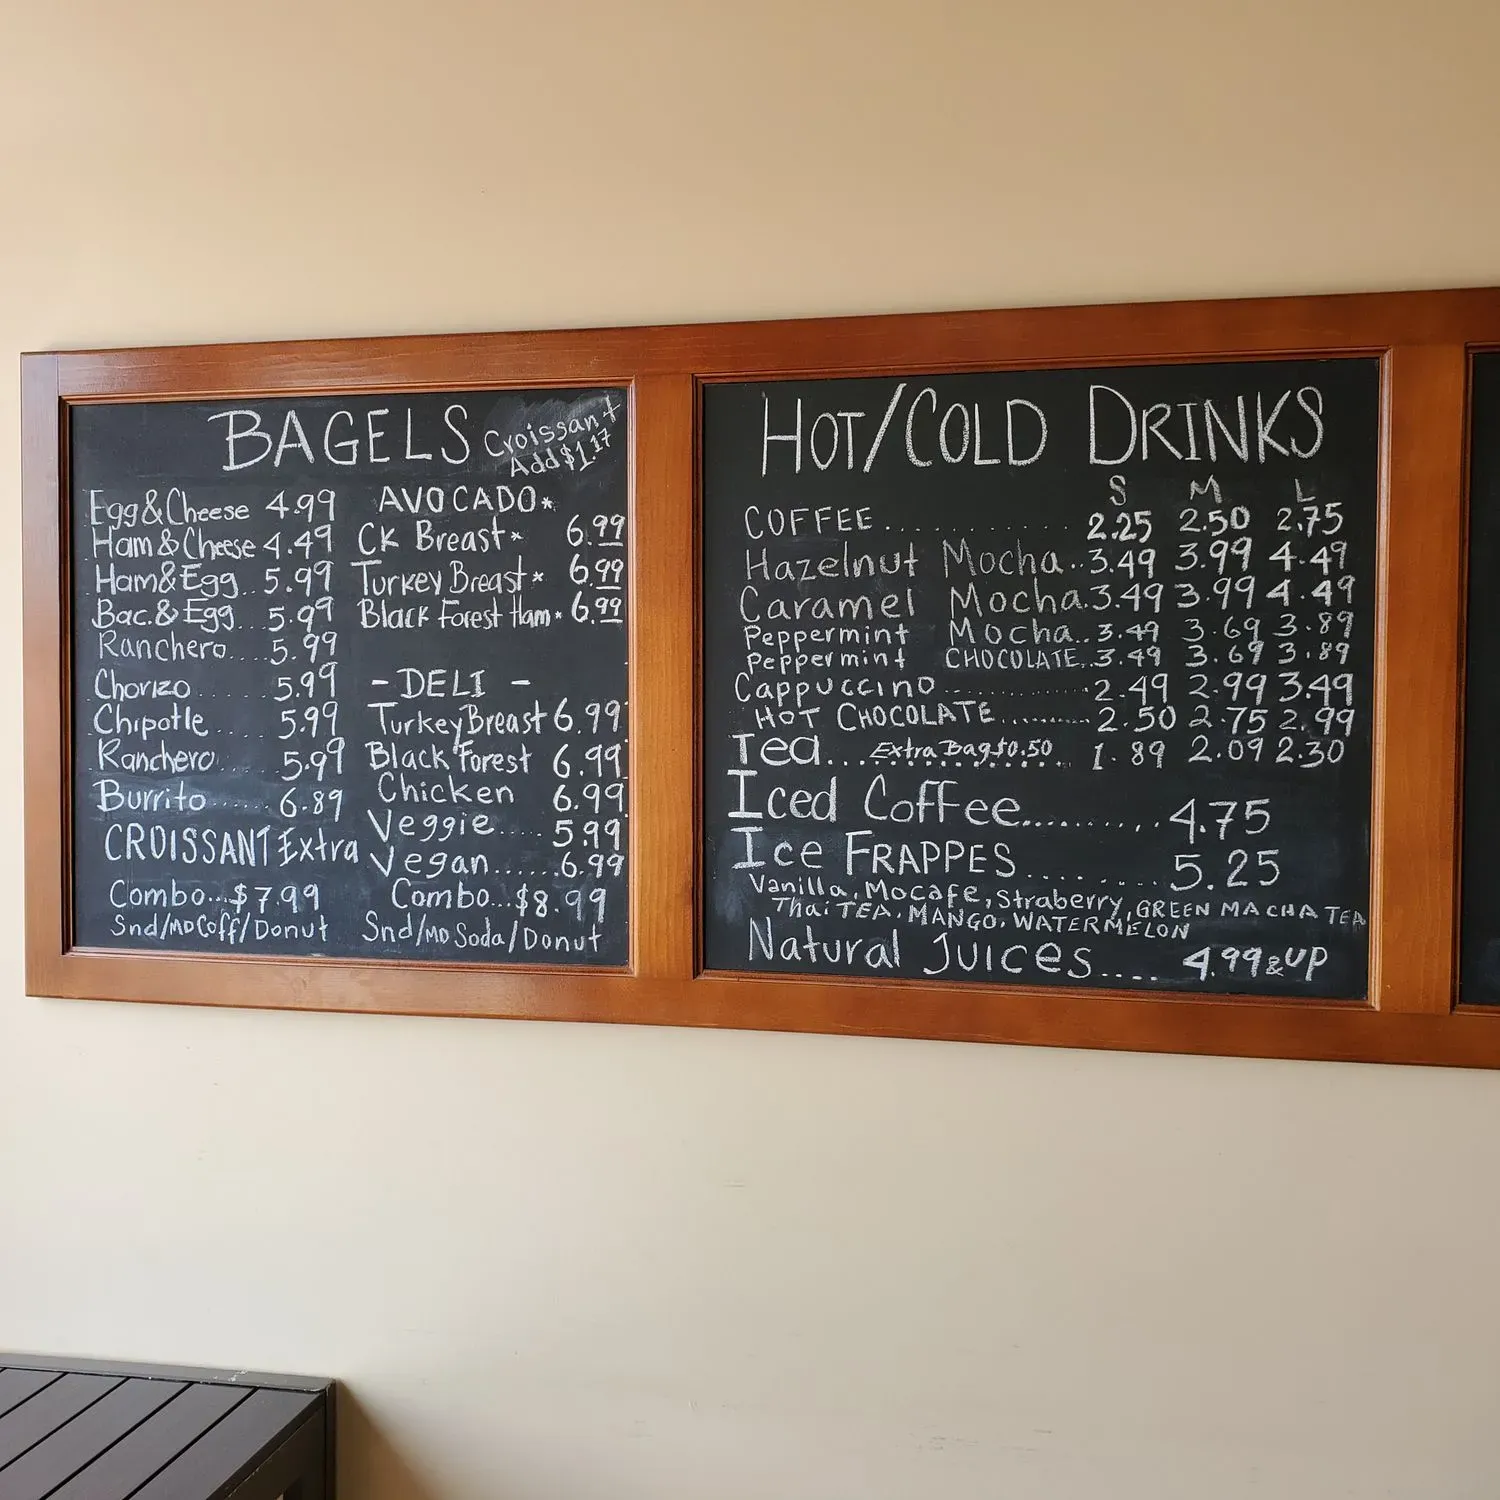 BAGELS
Croissant
Add $1.17
Egg & Cheese 4.99
Ham & Cheese 4.49
Ham & Egg.. 5.99
Bac. & Egg... 5.99
Ranchero.... 5.99
Chorizo...... 5.99
Chipotle..... 5.99
Ranchero..... 5.99
Burrito...... 6.89
CROISSANT Extra
Combo...$7.99
Snd/MD Coff/Donut
AVOCADO*
Ck Breast* 6.99
Turkey Breast* 6.99
Black Forest Ham* 6.99
- DELI -
Turkey Breast 6.99
Black Forest 6.99
Chicken 6.99
Veggie..... 5.99
Vegan....... 6.99
Combo...$8.99
Snd/MD Soda/Donut
HOT/COLD DRINKS
S M L
COFFEE............ 2.25 2.50 2.75
Hazelnut Mocha.. 3.49 3.99 4.49
Caramel Mocha. 3.49 3.99 4.49
Peppermint Mocha.. 3.49 3.69 3.89
Peppermint CHOCOLATE.. 3.49 3.69 3.89
Cappuccino............. 2.49 2.99 3.49
HOT CHOCOLATE.......... 2.50 2.75 2.99
Tea.... Extra Bag $0.50 1.89 2.09 2.30
Iced Coffee.......... 4.75
Ice FRAPPES......... 5.25
Vanilla, Mocafe, Straberry, GREEN MACHA TEA
Thai TEA. MANGO. WATERMELON
Natural Juices.... 4.99 & UP